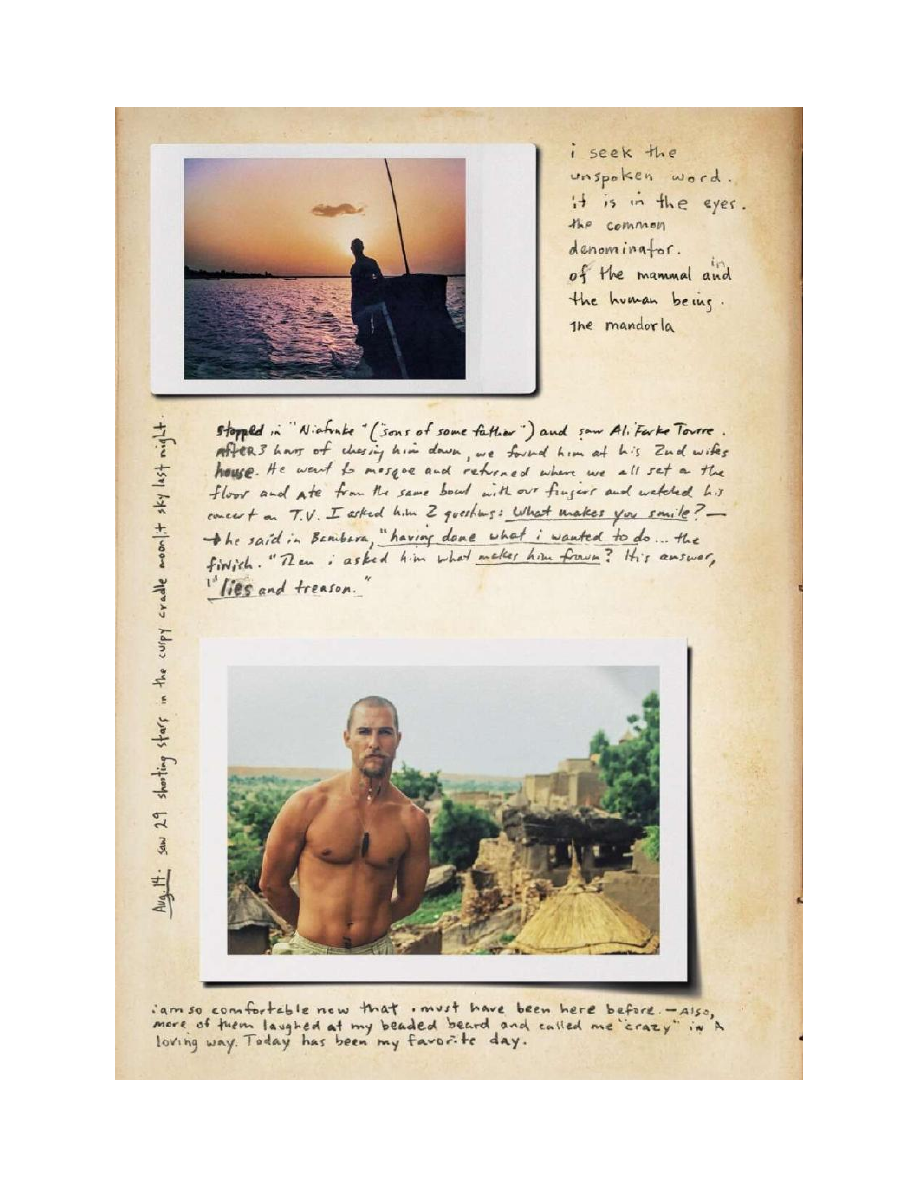 i seek the
unspoken word.
it is in the eyes.
the common
denominator.
of the mammal and in
the human being.
the mandorla
stopped in "Niafunke" ("sons of same father") and saw Ali Farke Tourre.
After 3 hours of chasing him down, we found him at his 2nd wifes
house. He went to mosque and returned where we all sat on the
floor and ate from the same bowl with our fingers and watched his
concert on T.V. I asked him 2 questions: What makes you smile? —
→ he said in Bambara, "having done what i wanted to do... the
finish." Then i asked him what makes him frown? His answer,
"lies and treason."
Aug. 14. saw 29 shooting stars in the cuspy cradle moonlit sky last night.
i am so comfortable now that i must have been here before. — Also,
more of them laughed at my beaded beard and called me "crazy" in A
loving way. Today has been my favorite day.